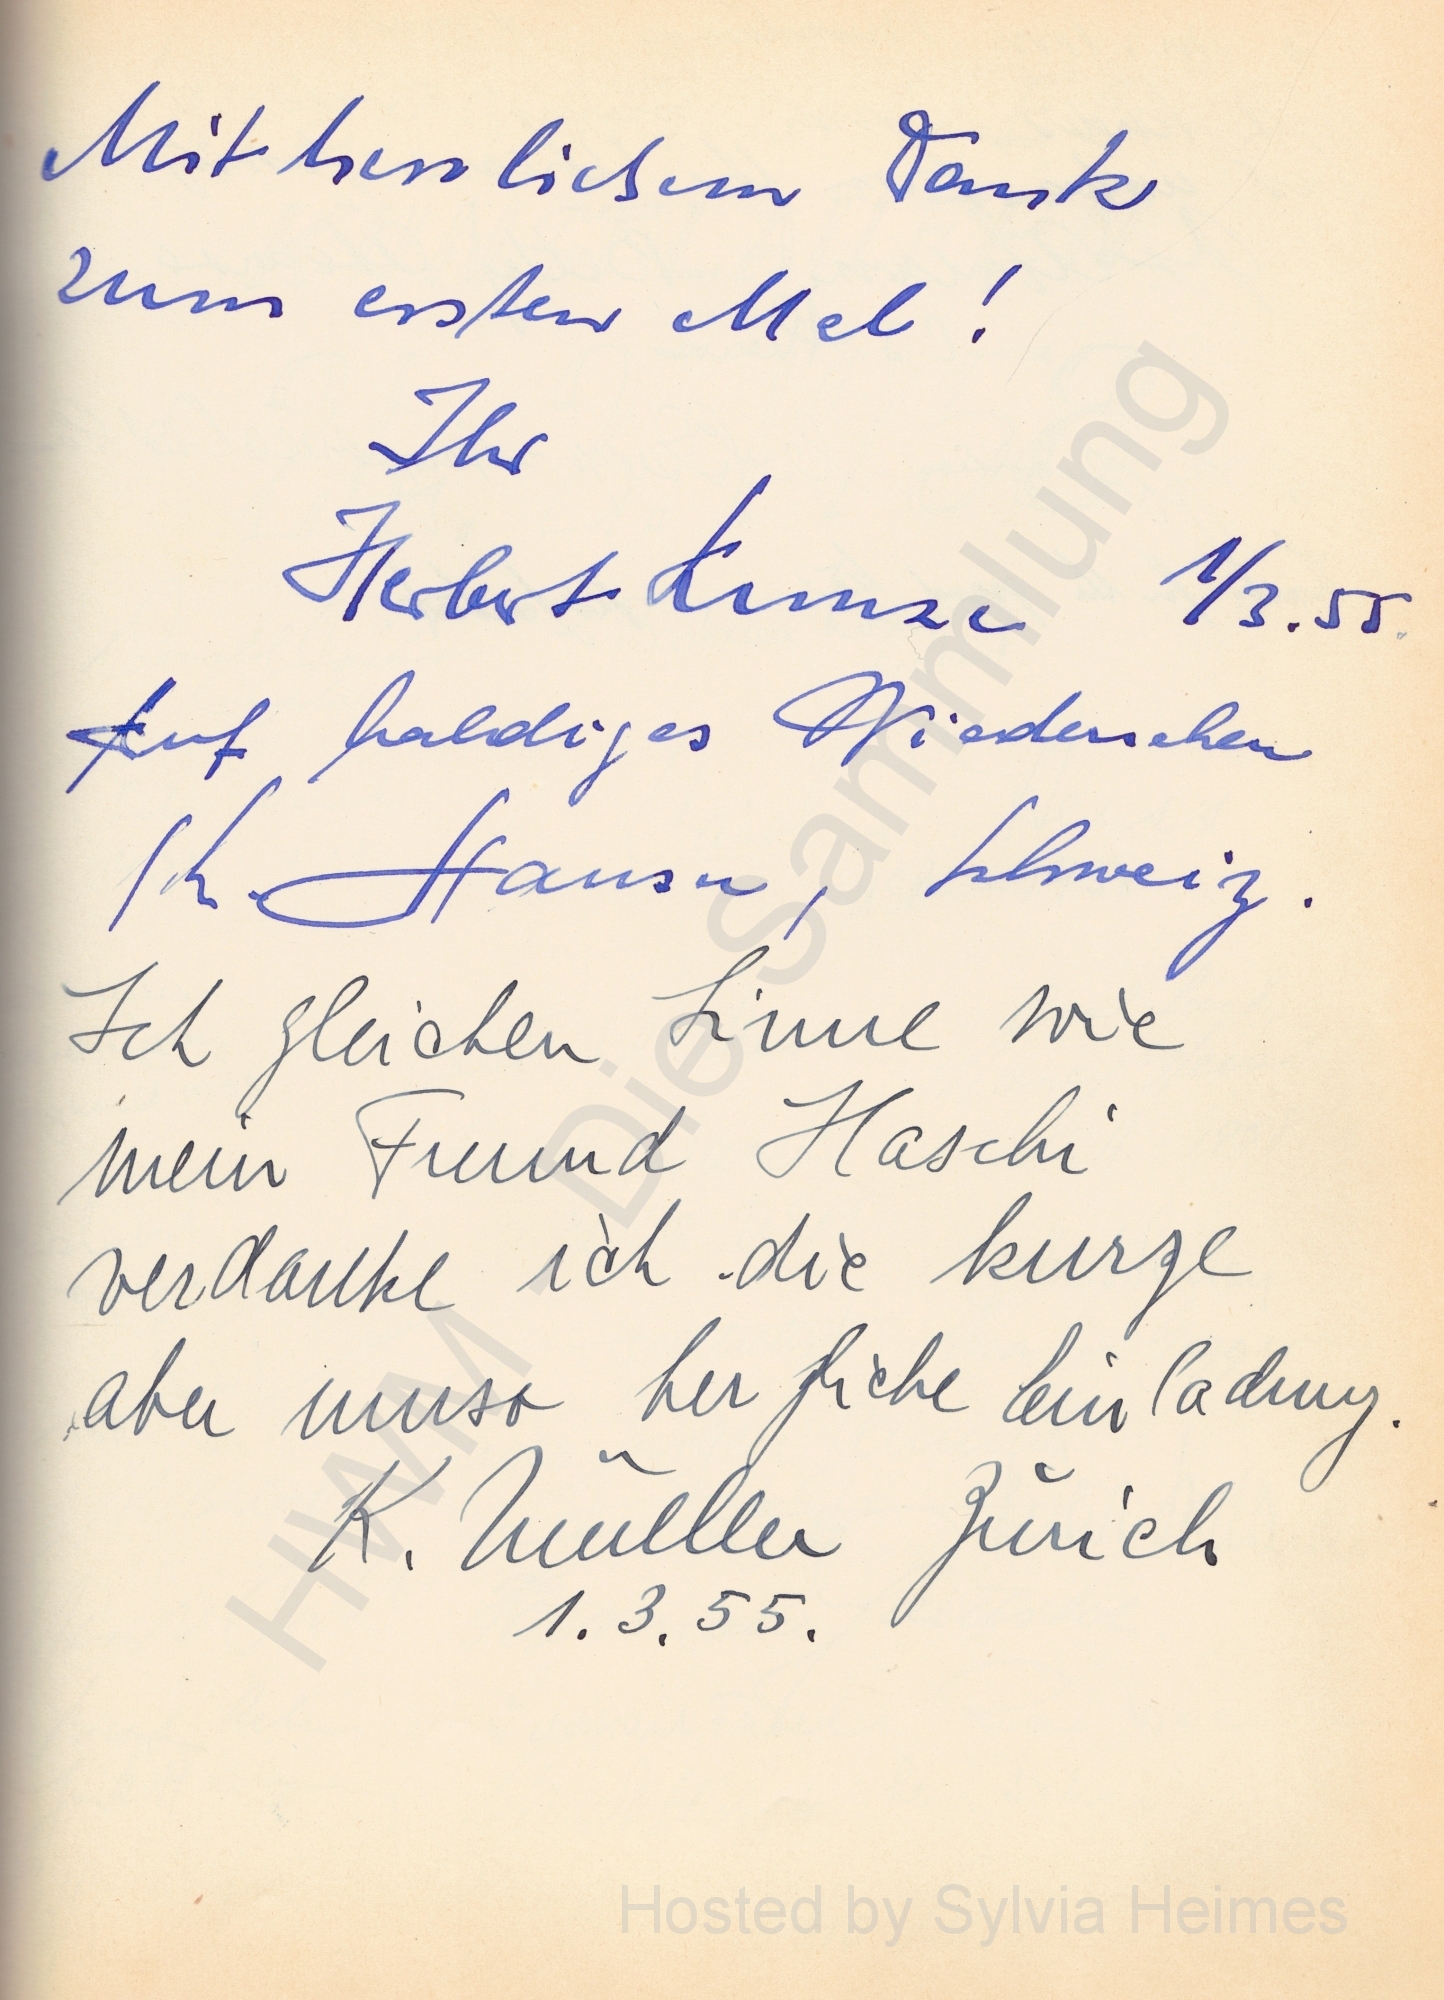 Mit herzlichem Dank
zum ersten Mal!
Ihr
Herbert Kunze 1/3.55.
Auf baldiges Wiedersehen
Hauser, Schweiz.
Ich gleichen Sinne wie
mein Freund Haschi
verdanke ich die kurze
aber umso herzliche Einladung.
K. Müller Zürich
1.3.55.
HWM Die Sammlung
Hosted by Sylvia Heimes